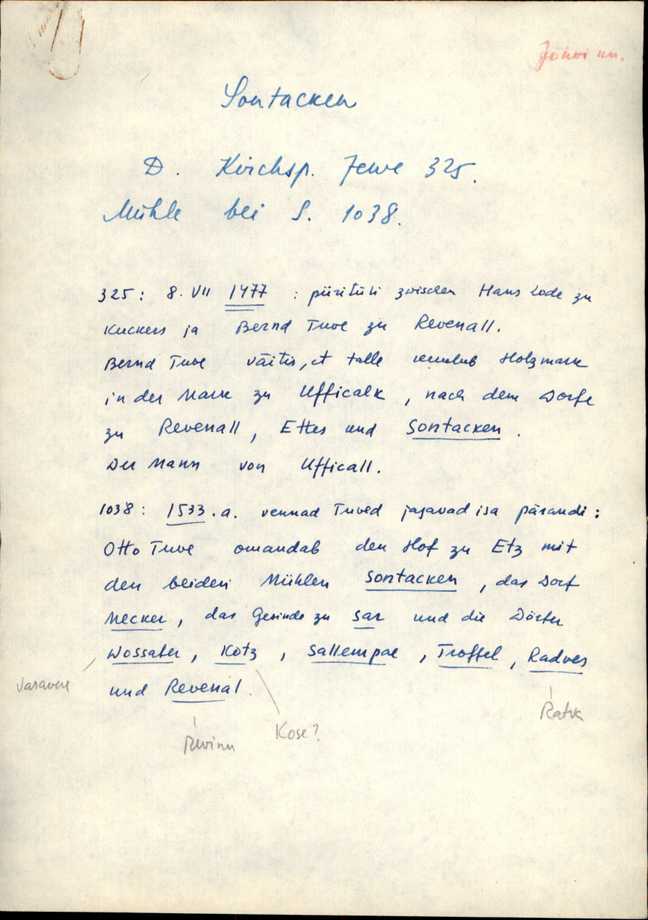 Jõhvi un.
Sontacken
D. Kirchsp. Jewe 325.
Mühle bei S. 1038.
325: 8. VII 1477 : piiritüli zwischen Hans Lode zu
Kuckers ja Bernd Tuve zu Revenall.
Bernd Tuve väitis, et talle kuulub Holzmark
in der Mark zu Ufficalk, nach dem Dorfe
zu Revenall, Ettes und Sontacken.
Der Mann von Ufficall.
1038: 1533.a. vennad Tuved jagavad isa pärandi:
Otto Tuve omandab den Hof zu Etz mit
den beiden Mühlen Sontacken, das Dorf
Mecker, das Gesinde zu Sar und die Dörfer
Wossafer, Kotz, Sallempae, Troffel, Radves
und Revenal.
Vasavere
Ratva
Kose?